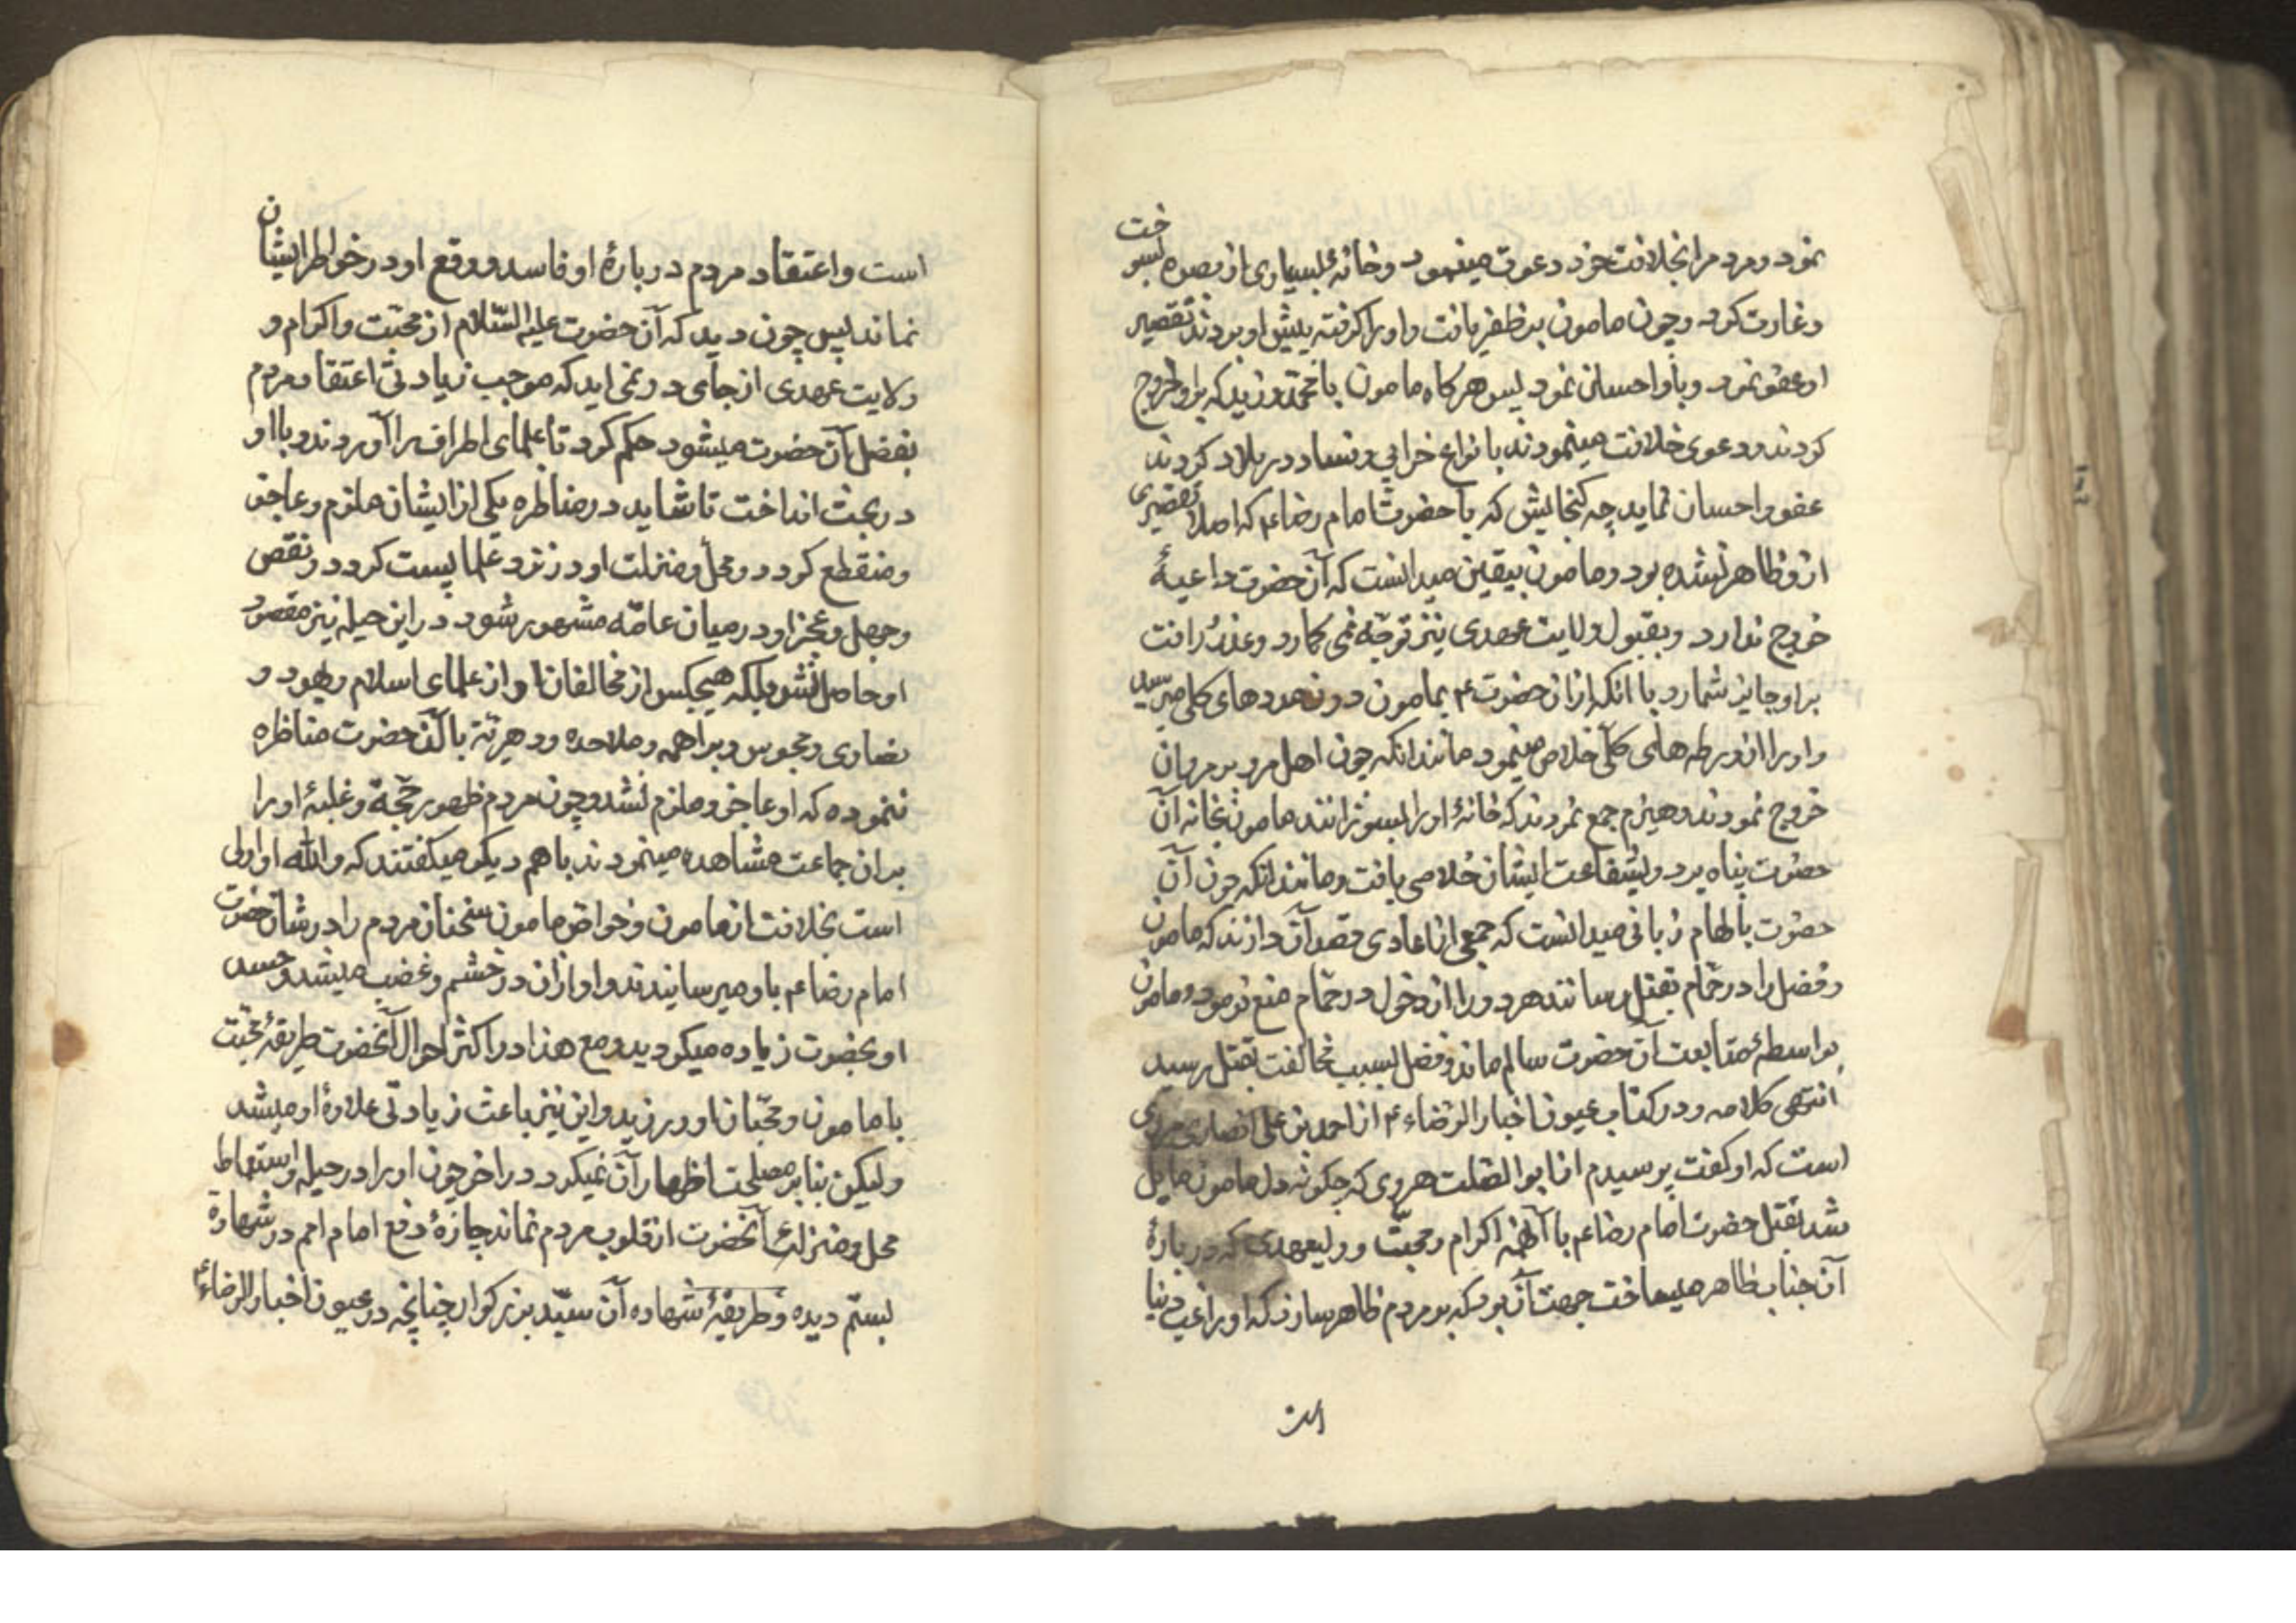 نمود و مردم را بخلافت خود دعوت مینمود و خانهٔ بسیاری از بصره بسوخت
و غارت کرد و چون مامون برو ظفر یافت و او را گرفته پیش او بردند تقصیر
او عفو نمود و باو احسان نمود پس هرگاه مامون با محمد و زید که برو خروج
کردند و دعوی خلافت مینمودند با نواع خرابی و فساد در بلاد کردند
عفو و احسان نماید چه گنجایش که با حضرت امام رضاء که اصلا تقصیری
ازو ظاهر نشده بود و مامون بیقین میدانست که آن حضرت داعیهٔ
خروج ندارد و بقبول ولایت عهدی نیز توجّه نمی کمارد و عذر را
بر او جایز شمارد با انکه ازان حضرت ع بمامون مددهای کلی میرسید
و او را از ورطه های کلّی خلاص مینمود مانند انکه چون اهل مرو بر مروان
خروج نمودند و هیزم جمع نمودند که خانهٔ او را بسوزانند مامون بخانه آن
حضرت پناه برد و بشفاعت ایشان خلاصی یافت و مانند انکه چون آن
حضرت بالهام ربانی میدانست که جمعی از اعادی قصد آن دارند که مامون
و فضل را در حمّام بقتل رسانند هر دو را از دخول در حمّام منع فرمود و مامون
بواسطهٔ متابعت آن حضرت سالم ماند و فضل بسبب مخالفت بقتل رسید
انتهی کلامه و در کتاب عیون اخبار الرضاء ع از احمد بن علی انصاری مروی
است که او گفت پرسیدم از ابوالصّلت هروی که چگونه دل مامون مایل
شد بقتل حضرت امام رضاء با آنهمه اکرام و محبّت و ولیعهدی که در بارهٔ
آن جناب ظاهر میساخت جهت آن بود که بر مردم ظاهر سازد که او راغب دنیا
است
است و اعتقاد مردم در بارهٔ او فاسد و وقع او در خواطر ایشان
نماند پس چون دید که آن حضرت علیه السّلام از محبّت و اکرام و
ولایت عهدی از جای در نمی اید که موجب زیادتی اعتقاد مردم
بفضل آن حضرت میشود حکم کرد تا علمای اطراف را آوردند و با او
در بحث انداخت تا شاید در مناظره یکی از ایشان ملزم و عاجز
و منقطع کردد و محل و منزلت او در نزد علما پست کردد و نقص
و جهل و عجز او در میان عامّه مشهور شود در این حیله نیز مقصود
او حاصل نشد بلکه هیچکس از مخالفان او از علمای اسلام و یهود و
نصاری و مجوس و براهمه و ملاحده و دهریّه با آن حضرت مناظره
ننموده که او عاجز و ملزم نشد و چون مردم ظهور حجّة و غلبهٔ او را
بر ان جماعت مشاهده مینمودند با هم دیگر میگفتند که والله او اولی
است بخلافت از مامون و خواص مامون سخنان مردم را در شان حضرت
امام رضاء باو میرسانیدند و او ازان در خشم و غضب میشد و حسد
او بحضرت زیاده میکردید و مع هذا در اکثر احوال آنحضرت طریقهٔ محبّت
با مامون و محبّان او ورزید و این نیز باعث زیادتی علاوهٔ او میشد
و لیکن بنا بر مصلحت اظهار آن نمیکرد در اخر چون او را در حیله و استسقاط
محل و منزلت آنحضرت از قلوب مردم نماند چارهٔ دفع امام امم در شهادة
بستم دیده و طریقهٔ شهاده آن سیّد بزرکوار چنانچه در عیون اخبار الرضاء ع